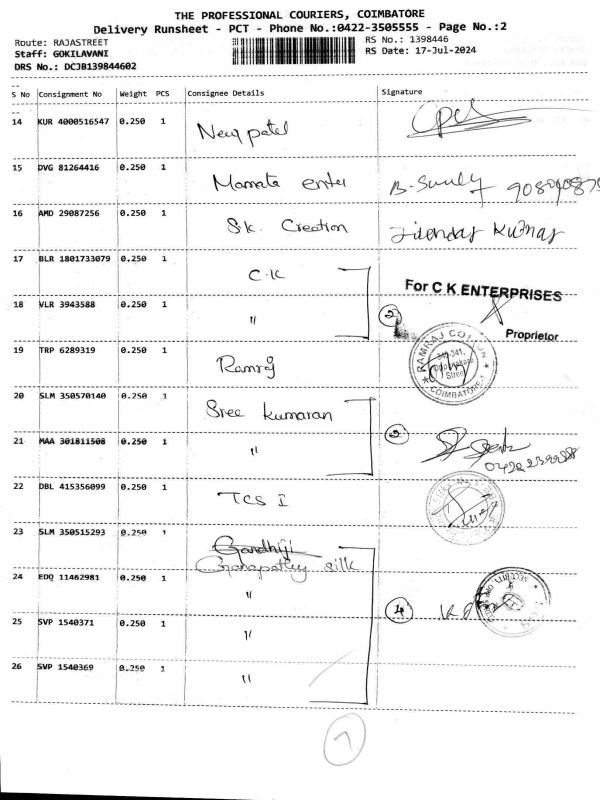 THE PROFESSIONAL COURIERS, COIMBATORE
Delivery Runsheet - PCT - Phone No.:0422-3505555 - Page No.:2
Route: RAJASTREET
RS No.: 1398446
Staff: GOKILAVANI
RS Date: 17-Jul-2024
DRS No.: DCJB139844602
S No Consignment No Weight PCS Consignee Details Signature
14 KUR 4000516547 0.250 1 New patel
15 DVG 81264416 0.250 1 Mamata enter
16 AMD 29087256 0.250 1 S.K. Creation Jitendar Kumar
17 BLR 1801733079 0.250 1 C.K
For C K ENTERPRISES
18 VLR 3943588 0.250 1 " 2
Proprietor
19 TRP 6289319 0.250 1 Ramraj RAMRAJ COTTON 340-341, Street COIMBATORE-1
20 SLM 350570140 0.250 1 Sree kumaran
21 MAA 301811508 0.250 1 " 2
22 DBL 415356099 0.250 1 TCS I
23 SLM 350515293 0.250 1 Gandhiji
Ganapathy silk
24 EDQ 11462981 0.250 1 " 4
25 SVP 1540371 0.250 1 "
26 SVP 1540369 0.250 1 "
7